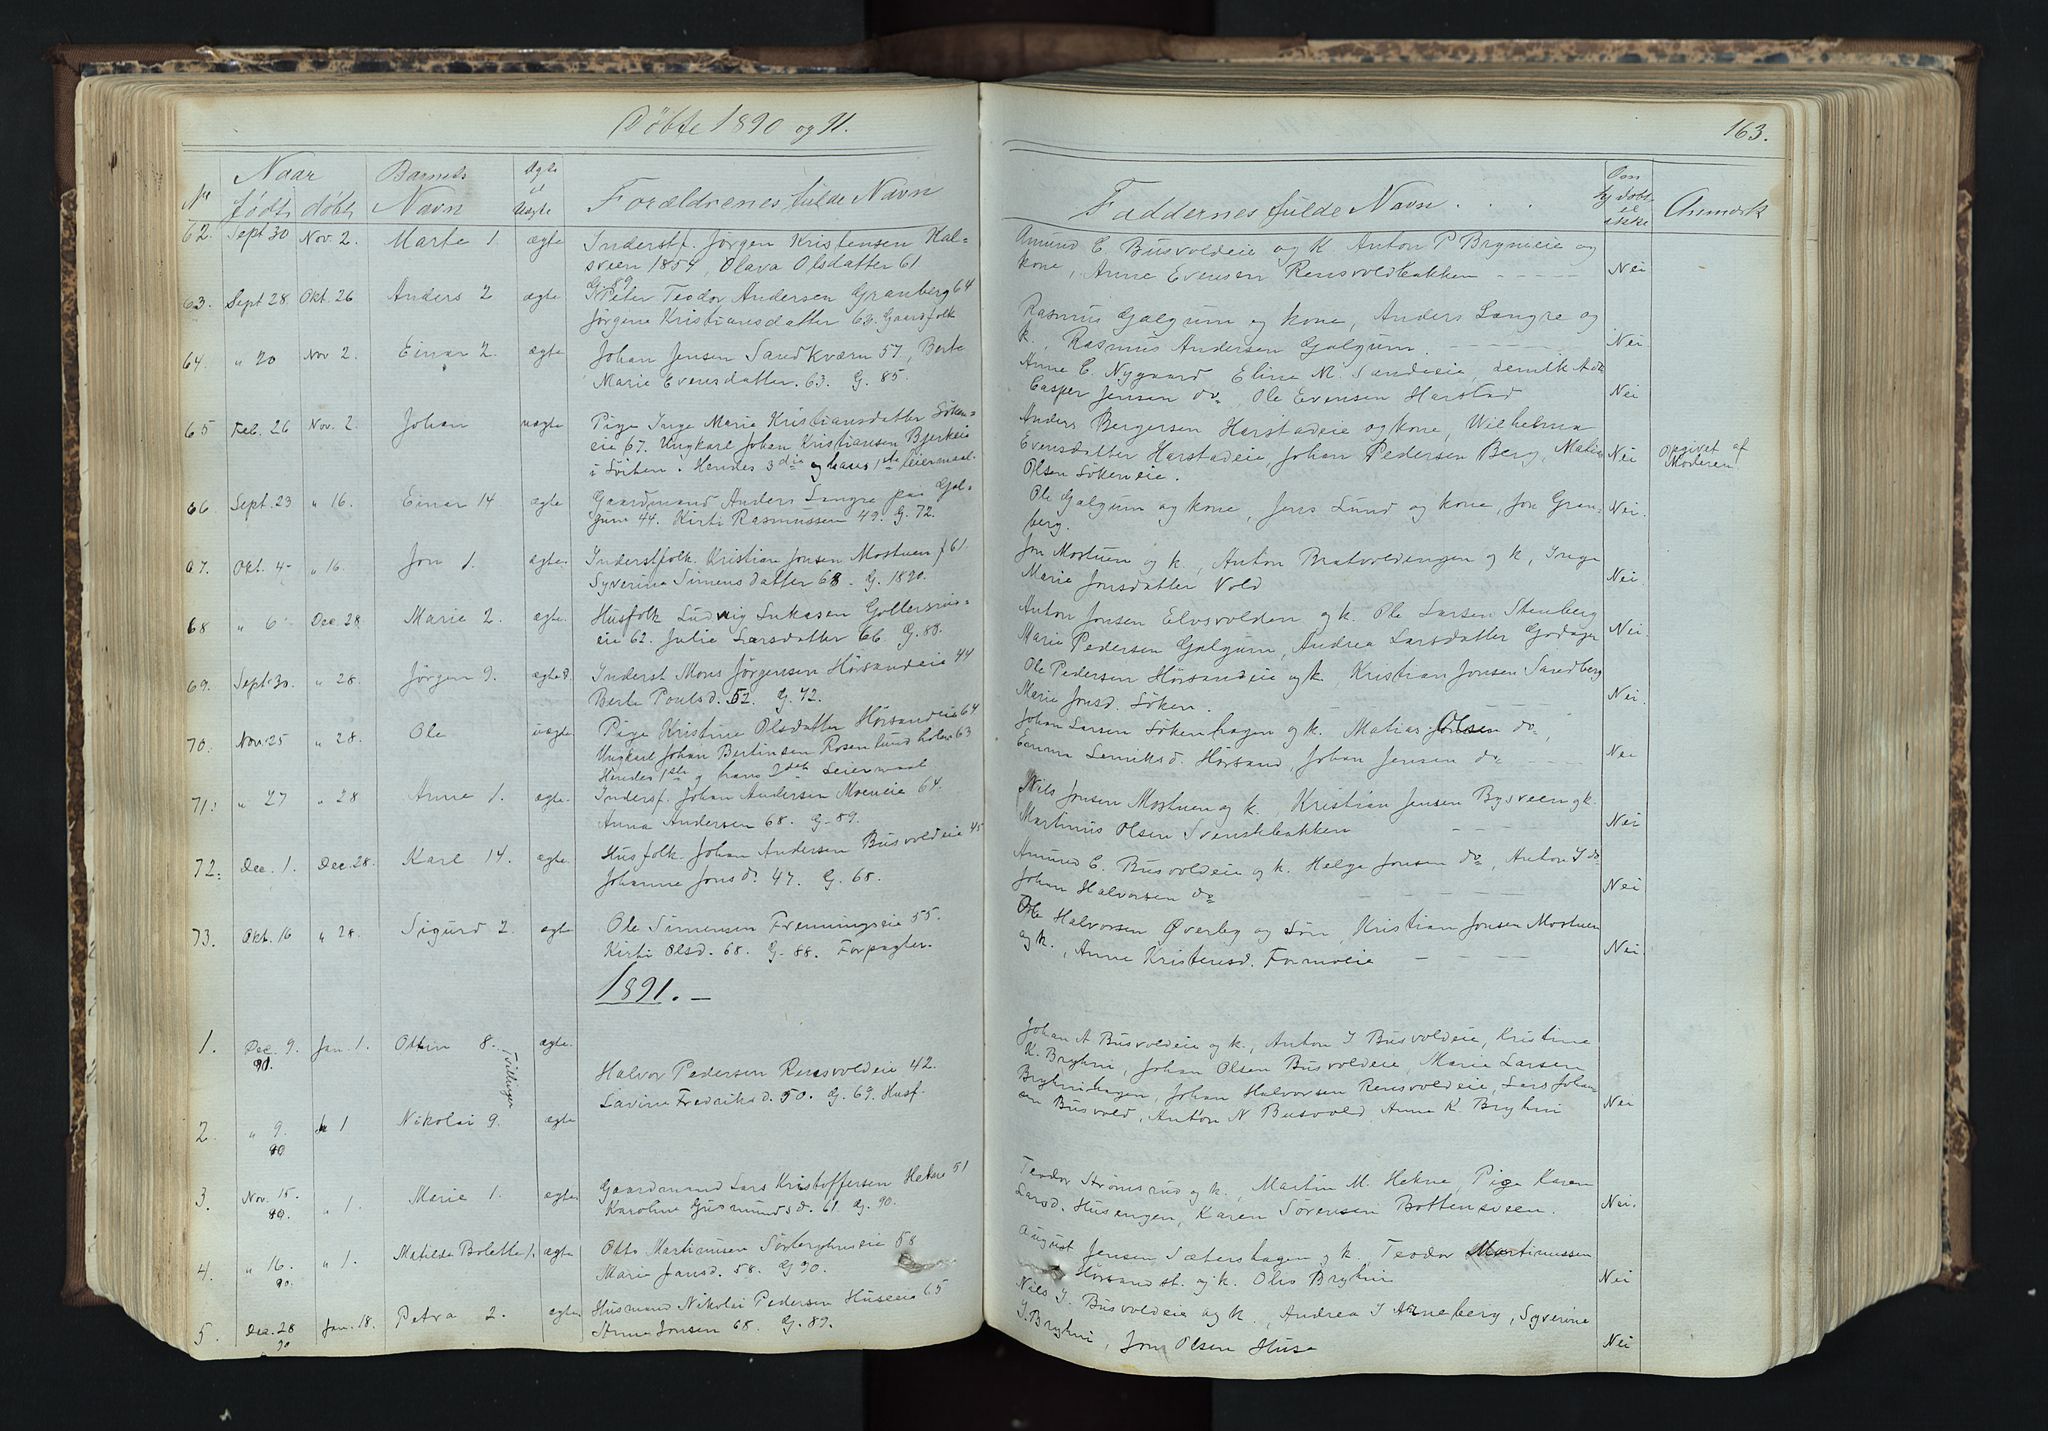 Døbte 1890 og 91.
163.
No Naar Barnets Ægte Forældrenes fulde Navn
født døbt Navn el Uægte
Faddernes fulde Navn . . . Om hj.døbt el ikke Anmærk
62. Sept 30 Nov. 2. Marte 1. ægte Inderstf. Jørgen Kristensen Kal-
sveen 1854, Olava Olsdatter 61
G. 89.
Amund C. Busvoldeie og K. Anton P Brynieie og
kone, Anne Evensen Rensvoldbakken Nei
63. Sept 28 Okt. 26 Anders 2 ægte Peter Teodor Andersen Granberg 64
Jørgine Kristiansdatter 63. Gaardfolk
Rasmus Galgum og kone, Anders Langre og
k, Rasmus Andersen Galgum. Nei
64. " 20 Nov 2. Einar 2. ægte. Johan Jensen Sandkværn 57, Berte
Marie Evensdatter. 63. G. 85.
Anne C. Nygaard, Eline M. Sandieie,
Casper Jensen do, Ole Evensen Harstad Nei
65 Feb. 26 Nov. 2. Johan uægte Pige Inge Marie Kristiansdatter Søken-
eie 67. Ungkarl Johan Kristiansen Bjerkeie
i Søiten. Hendes 3die og hans 1ste leiermaal
Anders Bergersen Harstadeie og kone, Wilhelmina
Evensdatter Harstadeie, Johan Pedersen Berg, Matias Nei Opgivet af
Olsen Sökeneie. Moderen
66 Sept. 23 " 16. Einar 14 ægte Gaardmand Anders Langre paa Gal-
gum 44. Kirti Rasmussen 49. G. 72.
Ole Galgum og kone, Jens Lund og kone, Jon Gran-
berg. Nei.
67. Okt. 4 " 16. Jon 1. ægte. Inderstfolk Kristian Jonsen Mostuen f 61.
Syverine Simensdatter 68. G. 1890.
Jon Mostuen og k, Anton Bratvoldengen og k, Inge
Marie Jonsdatter Vold Nei.
68 " 6 Dec 28 Marie 2. ægte. Husfolk Ludvig Lukasen Gollersrud-
eie 62. Julie Larsdatter 66. G. 88.
Anton Jonsen Elvsvolden og k. Ole Larsen Stenberg
Marie Pedersen Galgum, Andrea Larsdatter Godager Nei.
69. Sept. 30. " 28. Jørgen 9. ægte. Inderst Mons Jørgensen Hörsandeie 44
Berte Poulsd. 52. G. 72.
Ole Pedersen Hörsandeie og k. Kristian Jonsen Sandberg
Marie Jonsd. Söken. Nei.
70. Nov. 25 " 28. Ole uægte Pige Kristine Olsdatter Hörsandeie 64
Ungkarl Johan Bertinsen Rosenlund holen 63
Hendes 1ste og hans 2det Leiermaal
Johan Larsen Sökenhagen og k. Matias Olsen do,
Emma Lemiksd. Hörsand, Johan Jensen do Nei
71. " 27 " 28 Anne 1. ægte. Indersf. Johan Andersen Moeneie 64.
Anna Andersen 68. G. 89.
Nils Jonsen Mostuen og k. Kristian Jensen Bysveen og k.
Martinus Olsen Svenskbakken Nei
72. Dec. 1. Dec. 28. Karl 14. ægte. Husfolk Johan Andersen Busvoldeie 45
Johanne Jonsd. 47. G. 68.
Amund C. Busvoldeie og k. Helge Jonsen do, Anton I do
Johan Halvorsen do Nei
73. Okt. 16 " 28. Sigurd 2. ægte Ole Simensen Fremingseie 55.
Kirti Olsd. 68. G. 88. Forpagter.
Ole Halvorsen Øverby og Søn, Kristian Jonsen Mostuen
og k., Anne Kristensd. Formoeie Nei.
1891.
1. Dec. 9. 90. Jan. 1. Ottin 8. Tvillinger ægte.
Halvor Pedersen Rensvoldeie 42.
Lavine Fredriksd. 50. G. 69. Husf.
Johan A Busvoldeie og k, Anton I Busvoldeie, Kristine
K. Bryhni, Johan Olsen Busvoldeie, Marie Larsen
Bryhnihagen, Johan Halvorsen Rensvoldeie, Lars Johan-
sen Busvold, Anton N Busvold, Anne K. Bryhni Nei
2. " 9. 90 " 1 Nikolai 9. ægte
3. Nov. 15. 90. " 1. Marie 1. ægte. Gaardmand Lars Kristoffersen Hekne 51
Karoline Gusmundsd. 61. G. 90.
Teodor Strömsrud og k., Martin M. Hekne, Pige Karen
Larsd. Husengen, Karen Sörensen Bottensveen. Nei.
4. " 16. 90. " 1. Matilde Bolette 1. ægte Otto Martinusen Sörbryhnieie 58
Marie Jansd. 58. G 90.
August Jensen Sætershagen og k. Teodor Martinussen
Hörsandst. og k. Olis Bryhni Nei
5. Dec. 28 90 Jan. 18. Petra 2. ægte. Husmand Nikolai Pedersen Huseeie 65
Anne Jonsen 68. G. 89.
Nils I. Busvoldeie og k., Andrea I Arneberg, Syverine
I. Bryhni, Jon Olsen Huse Nei